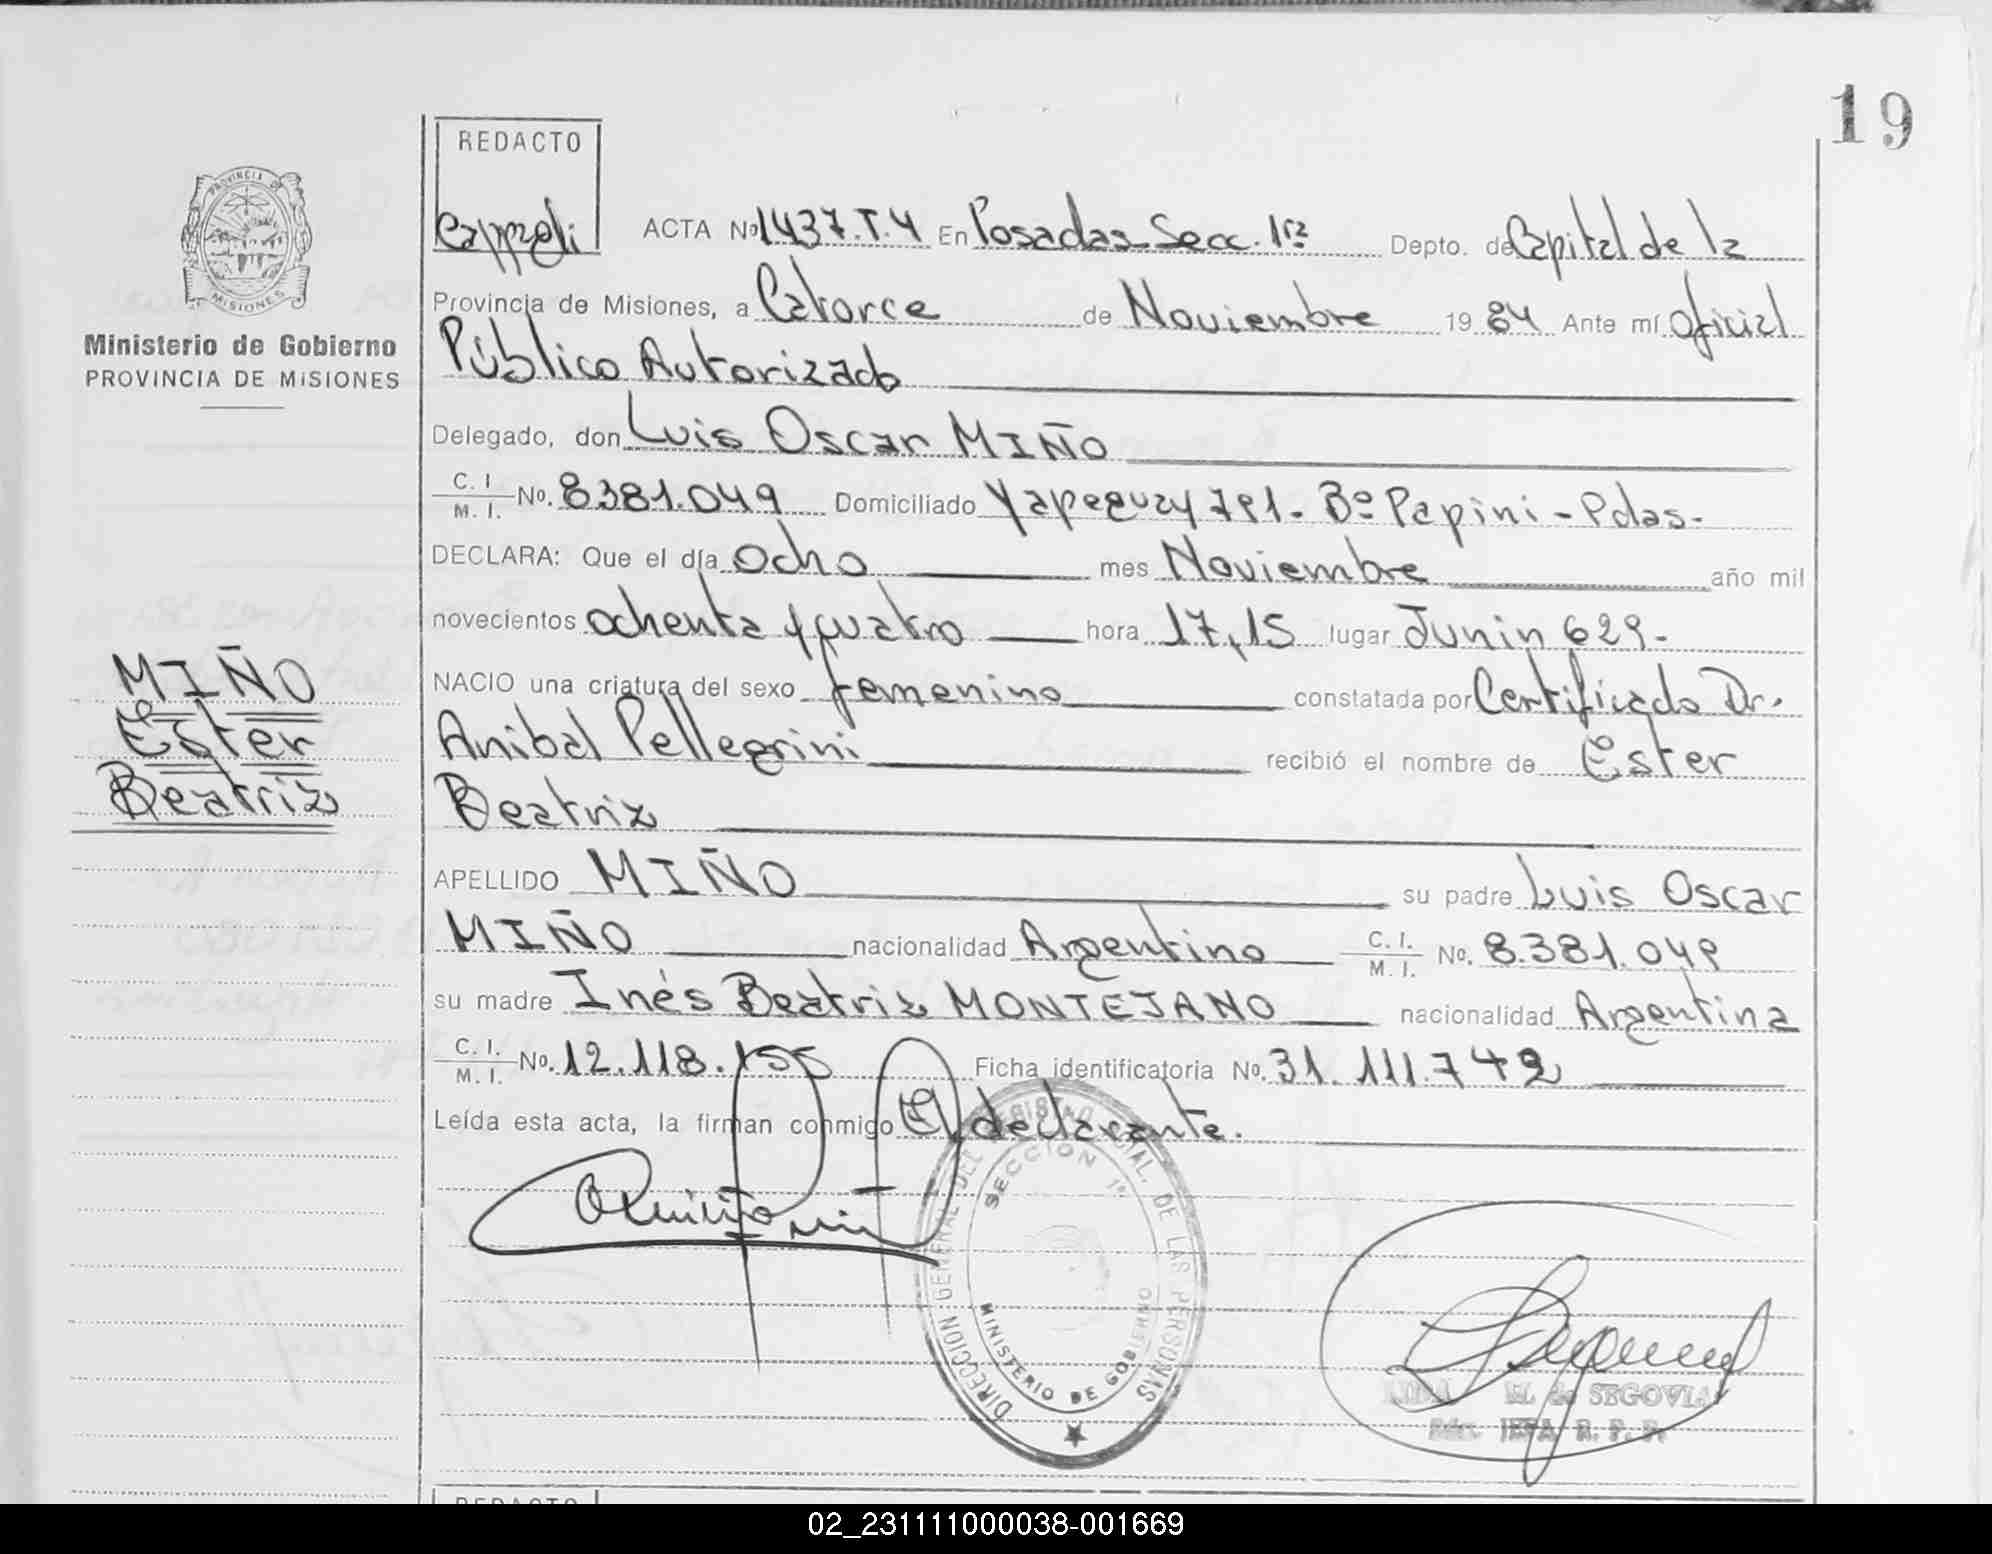 19
REDACTO
Cappeli
PROVINCIA DE
MISIONES
Ministerio de Gobierno
PROVINCIA DE MISIONES
ACTA Nº 1437.T.4 En Posadas Secc. 1ra Depto. de Capital de la
Provincia de Misiones, a Catorce de Noviembre 19 84 Ante mí Oficial
Público Autorizado
Delegado, don Luis Oscar MIÑO
C. I. / M. I. No. 8381.049 Domiciliado Yapeguay 791 - Bº Papini - Pdas-
DECLARA: Que el día Ocho mes Noviembre año mil
novecientos ochenta y cuatro hora 17,15 lugar Junin 629-
NACIO una criatura del sexo femenino constatada por Certificado Dr.
Anibal Pellegrini recibió el nombre de Ester
Beatriz
APELLIDO MIÑO su padre Luis Oscar
MIÑO nacionalidad Argentino C. I. / M. I. No. 8.381.049
su madre Inés Beatriz MONTEJANO nacionalidad Argentina
C. I. / M. I. No. 12.118.155 Ficha identificatoria No. 31.111.742
Leída esta acta, la firman conmigo El declarante.
MIÑO
Ester
Beatriz
DIRECCION GENERAL DEL REGISTRO PCIAL. DE LAS PERSONAS
SECCION 1ª
MINISTERIO DE GOBIERNO
M. de SEGOVIA
JEFA R. P. P.
REDACTO
02_231111000038-001669